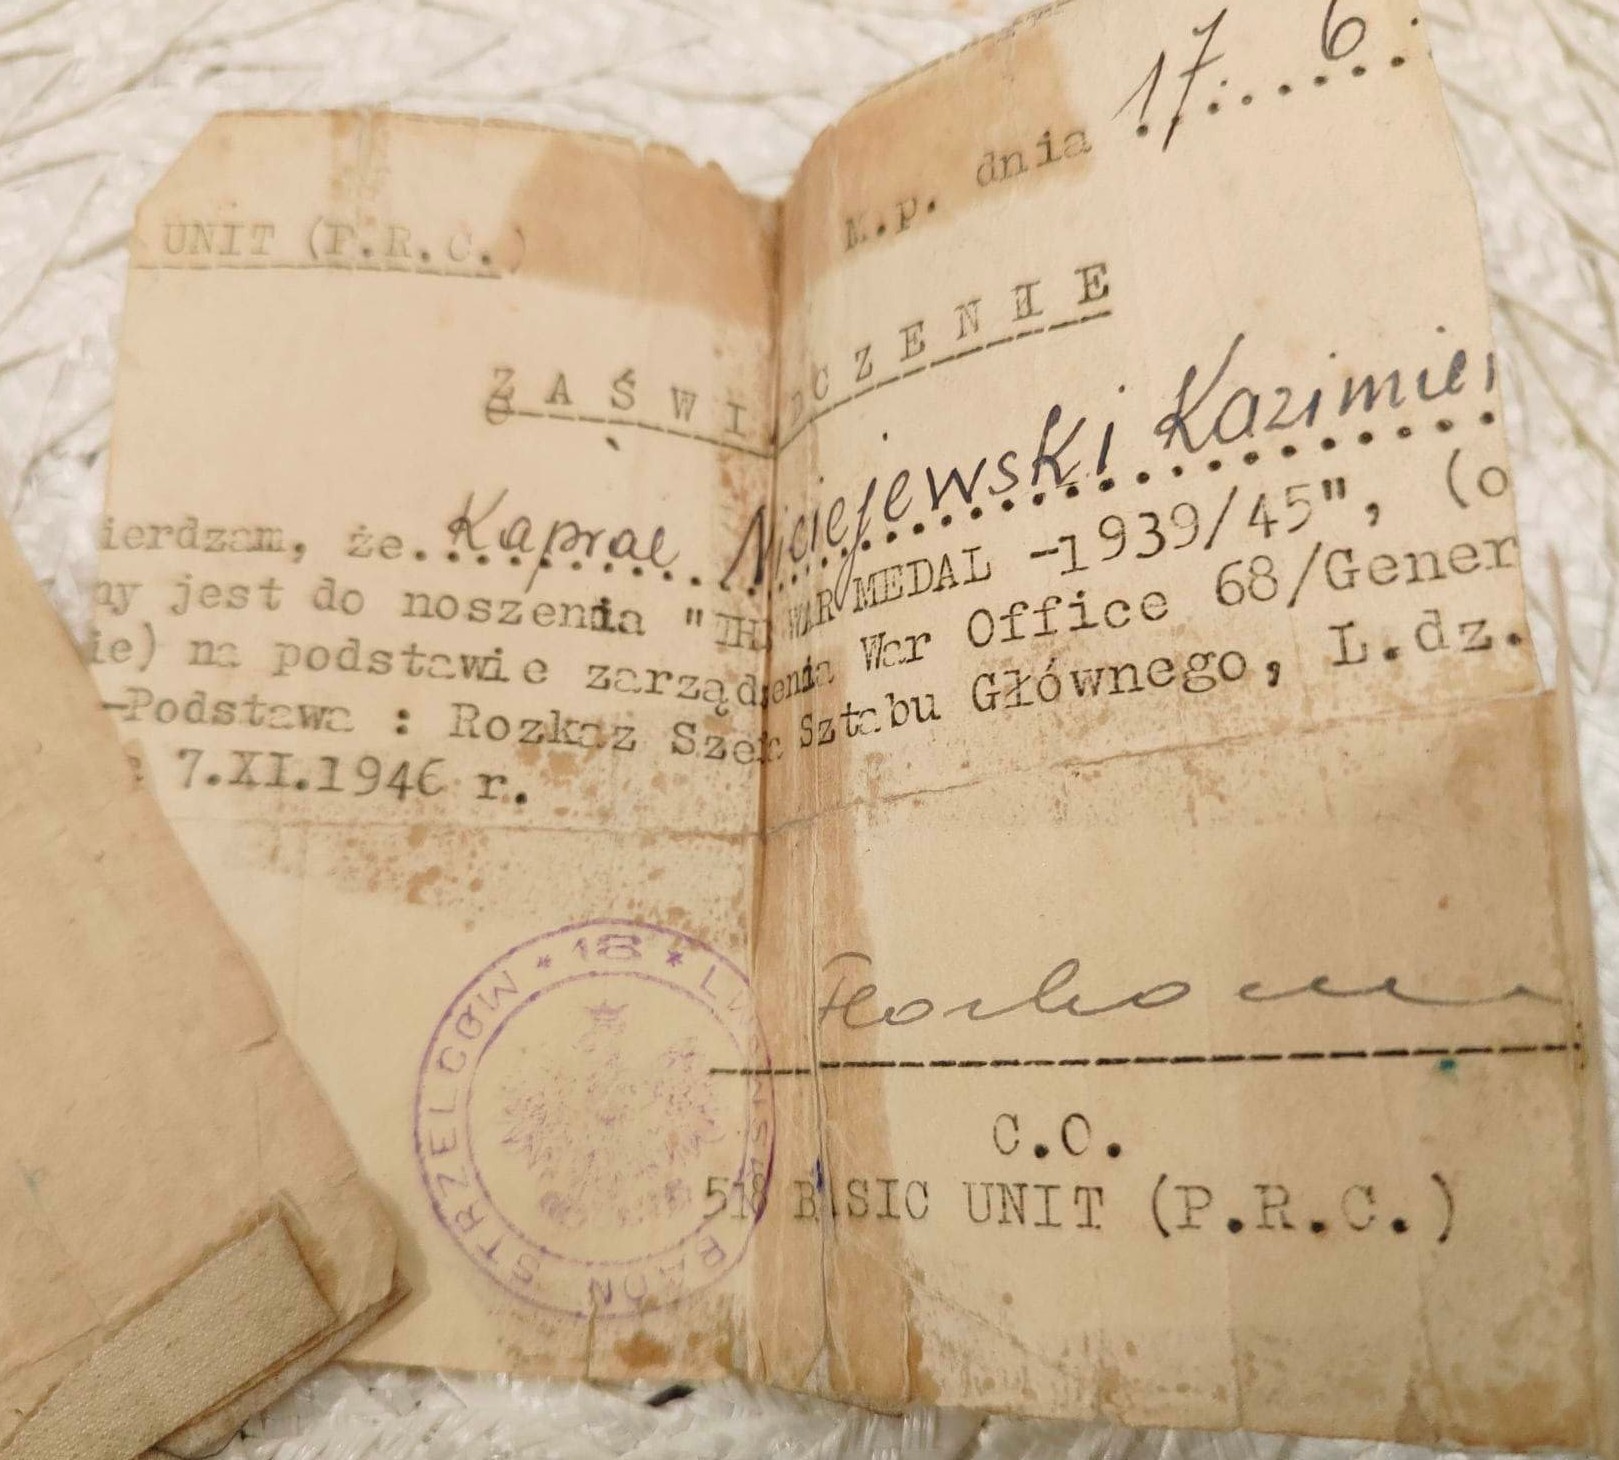 UNIT (P.R.C.)
M.p. dnia 17. 6.
ZAŚWI DCZENIE
ierdzam, że. Kapral Niciejewski Kazimier
ny jest do noszenia "THE WAR MEDAL -1939/45", (o
ie) na podstawie zarządzenia War Office 68/Gener
-Podstawa : Rozkaz Szefa Sztabu Głównego, L.dz.
7.XI.1946 r.
* 18 * LWOWSKI BAON STRZELCÓW
C.O.
518 BASIC UNIT (P.R.C.)